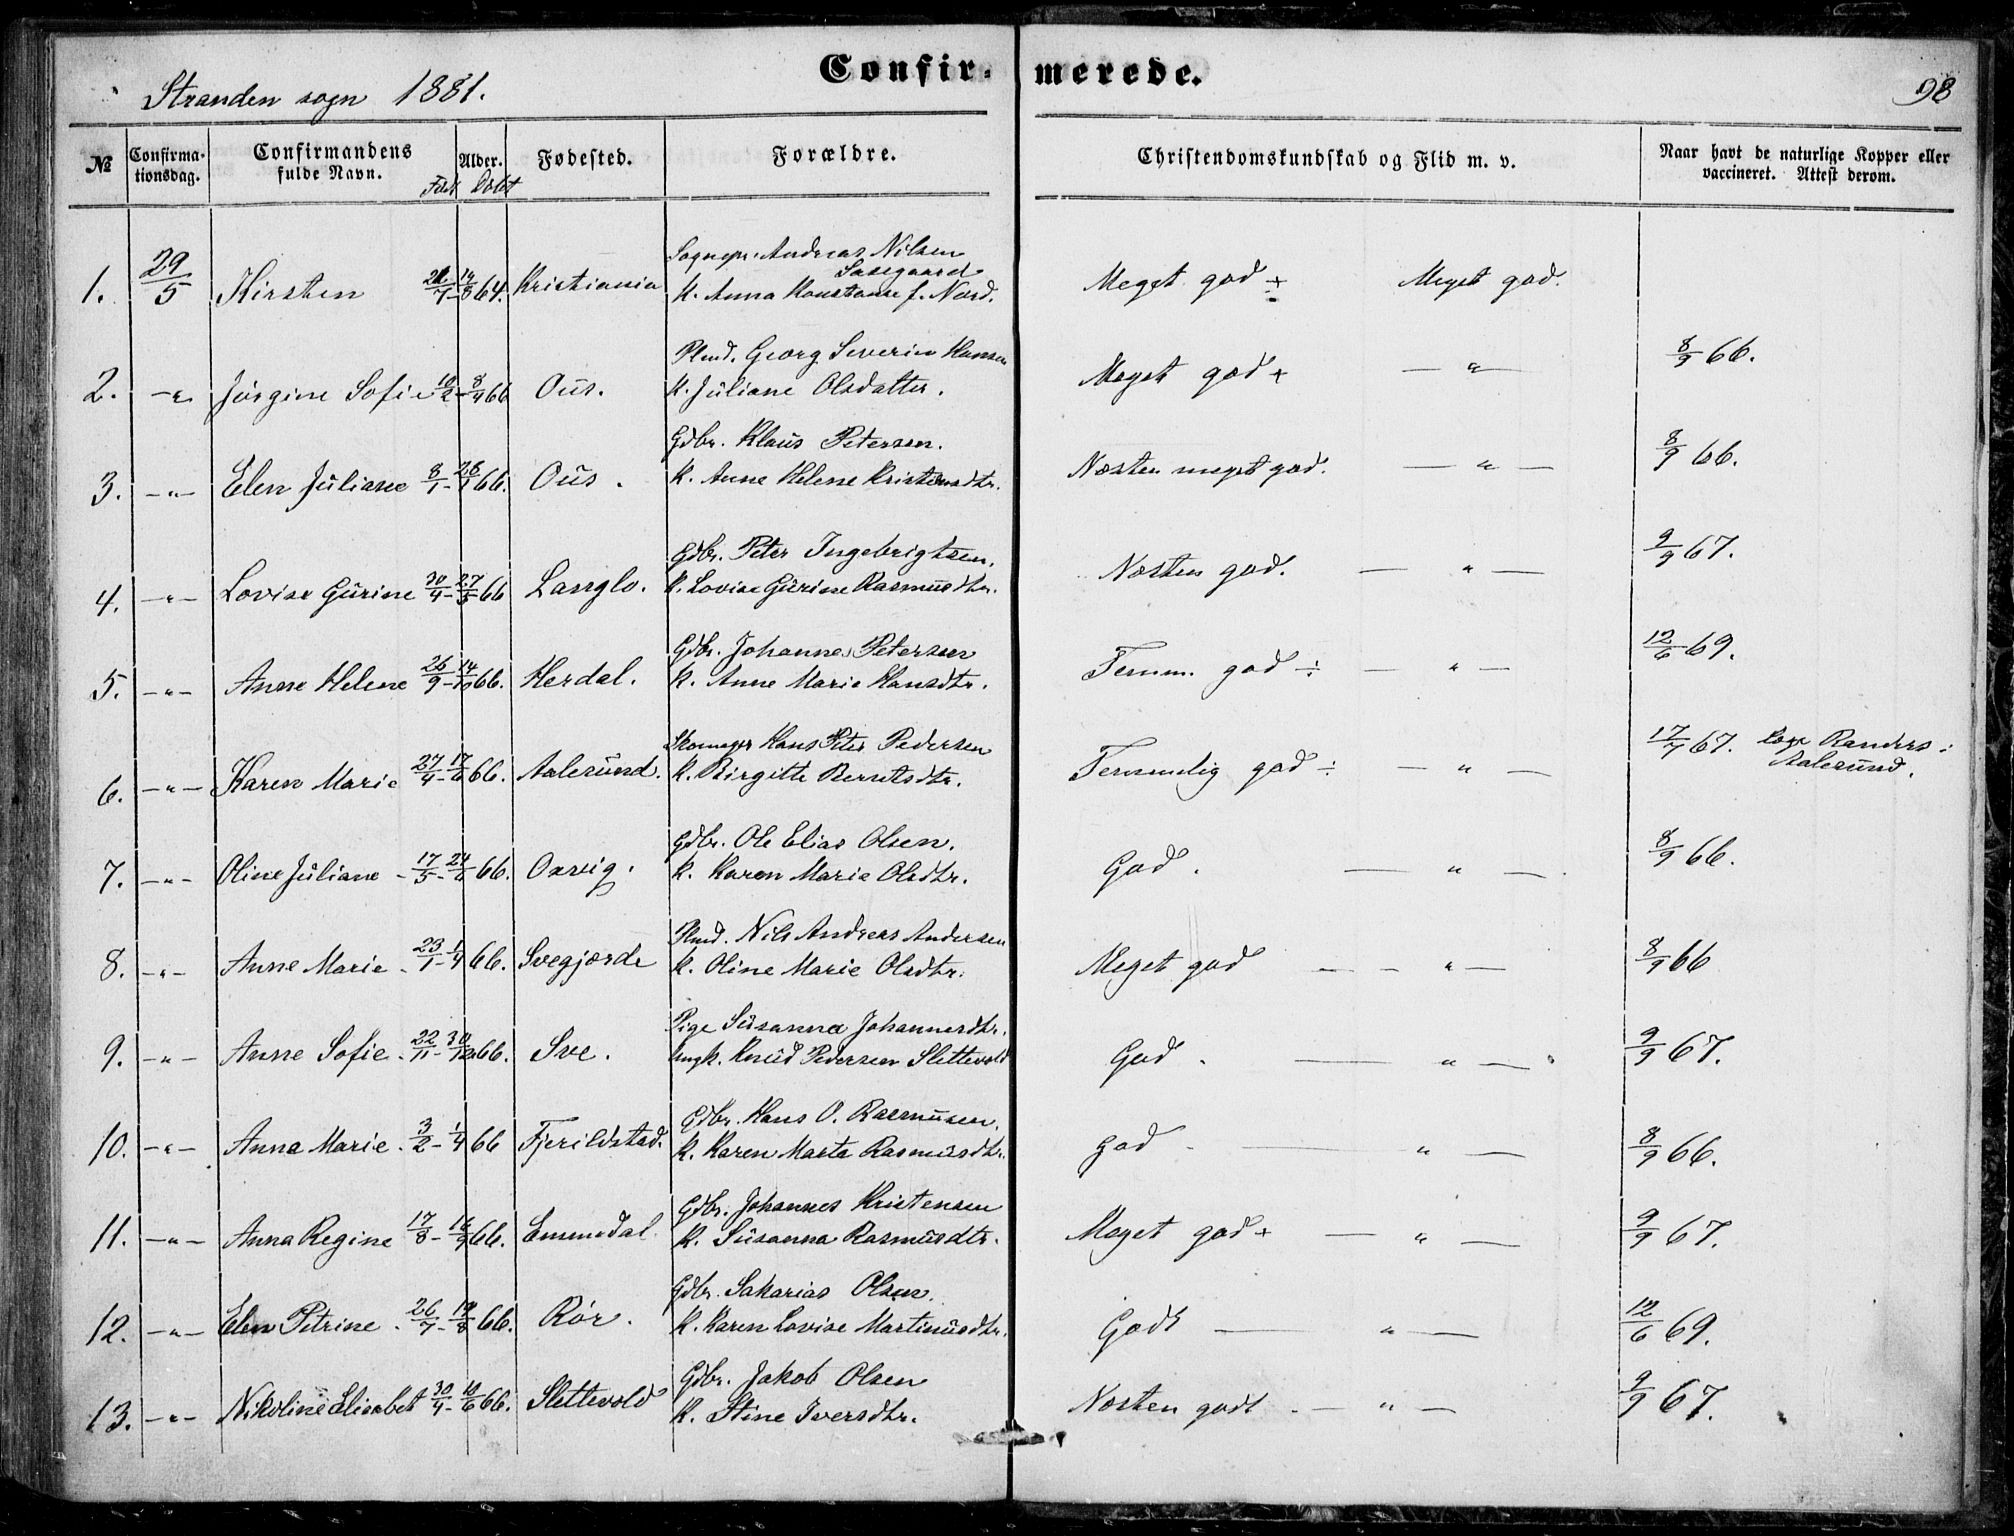 Confir- merede.
Stranden sogn 1881.
98
№ Confirma-tionsdag. Confirmandens fulde Navn. Alder. Født Døbt Fødested. Forældre. Christendomskundskab og Flid m. v. Naar havt de naturlige Kopper eller vaccineret. Attest derom.
Sognepr. Andreas Nilsen
1. 29/5 Kirsten 64. Kristiania K. Anna Konstanse f. Meget god ÷ Meget god.
Plmd. Georg Severin Hansen
2. -"- Jørgine Sofie 10/2 - 8/4 66 Ous. K. Juliane Olsdatter. Meget god + — " — 8/9 66.
Gdbr. Klaus Petersen.
3. -"- Elen Juliane 8/1 - 66. Ous. K. Anne Helene Kristensdtr. Næsten meget god. — " — 8/9 66.
Gdbr. Peter Ingebrigtsen.
4. -"- Lovise Gurine 30/4 - 27/5 66 Langlo. K. Lovise Gurine Rasmusdtr. Næsten god. — " — 9/9 67.
Gdbr. Johannes Petersen
5. -"- Anne Helene 26/9 - 14/10 66. Herdal. K. Anne Marie Hansdtr. Temm. god ÷ — " — 12/6 69.
Skomager Hans Peter Pedersen
6. -"- Karen Marie 27/4 - 17/6 66. Aalesund. K. Birgitte Berntsdtr. Temmelig god ÷ — " — 17/7 67. Randers i
Aalesund.
Gdbr. Ole Elias Olsen.
7. -"- Oline Juliane - 17/5 - 24/6 66. Oxvig. K. Karen Marie Olsdtr. God. — " — 8/9 66.
Plmd. Nils Andreas Andersen
8. -"- Anne Marie - 23/1 - 1/4 66. Svegjærde K. Oline Marie Olsdtr. Meget god — " — 8/9 66
Pige Susanna Johannesdtr.
9. -"- Anne Sofie - 22/11 - 30/12 66. Sve. Ungk. Knud Pedersen Slettevold God. — " — 9/9 67.
Gdbr. Hans O. Rasmusen.
10. -"- Anna Marie - 3/2 - 1/4 66 Fjerildstad. K. Karen Marta Rasmusdtr. God — " — 8/9 66.
Gdbr. Johannes Kristensen
11. -"- Anna Regine 17/8 - 16/9 66. Emmedal K. Susanna Rasmusdtr. Meget god + — " — 9/9 67.
Gdbr. Sakarias Olsen.
12. -"- Elen Petrine - 26/7 - 19/8 66. Rør. K. Karen Lovise Martinusdtr. Godt — " — 12/6 69.
Gdbr. Jakob Olsen
13. -"- Nikoline Elisabet 30/4 - 10/6 66. Slettevold K. Stine Iversdtr. Næsten godt — " — 9/9 67.